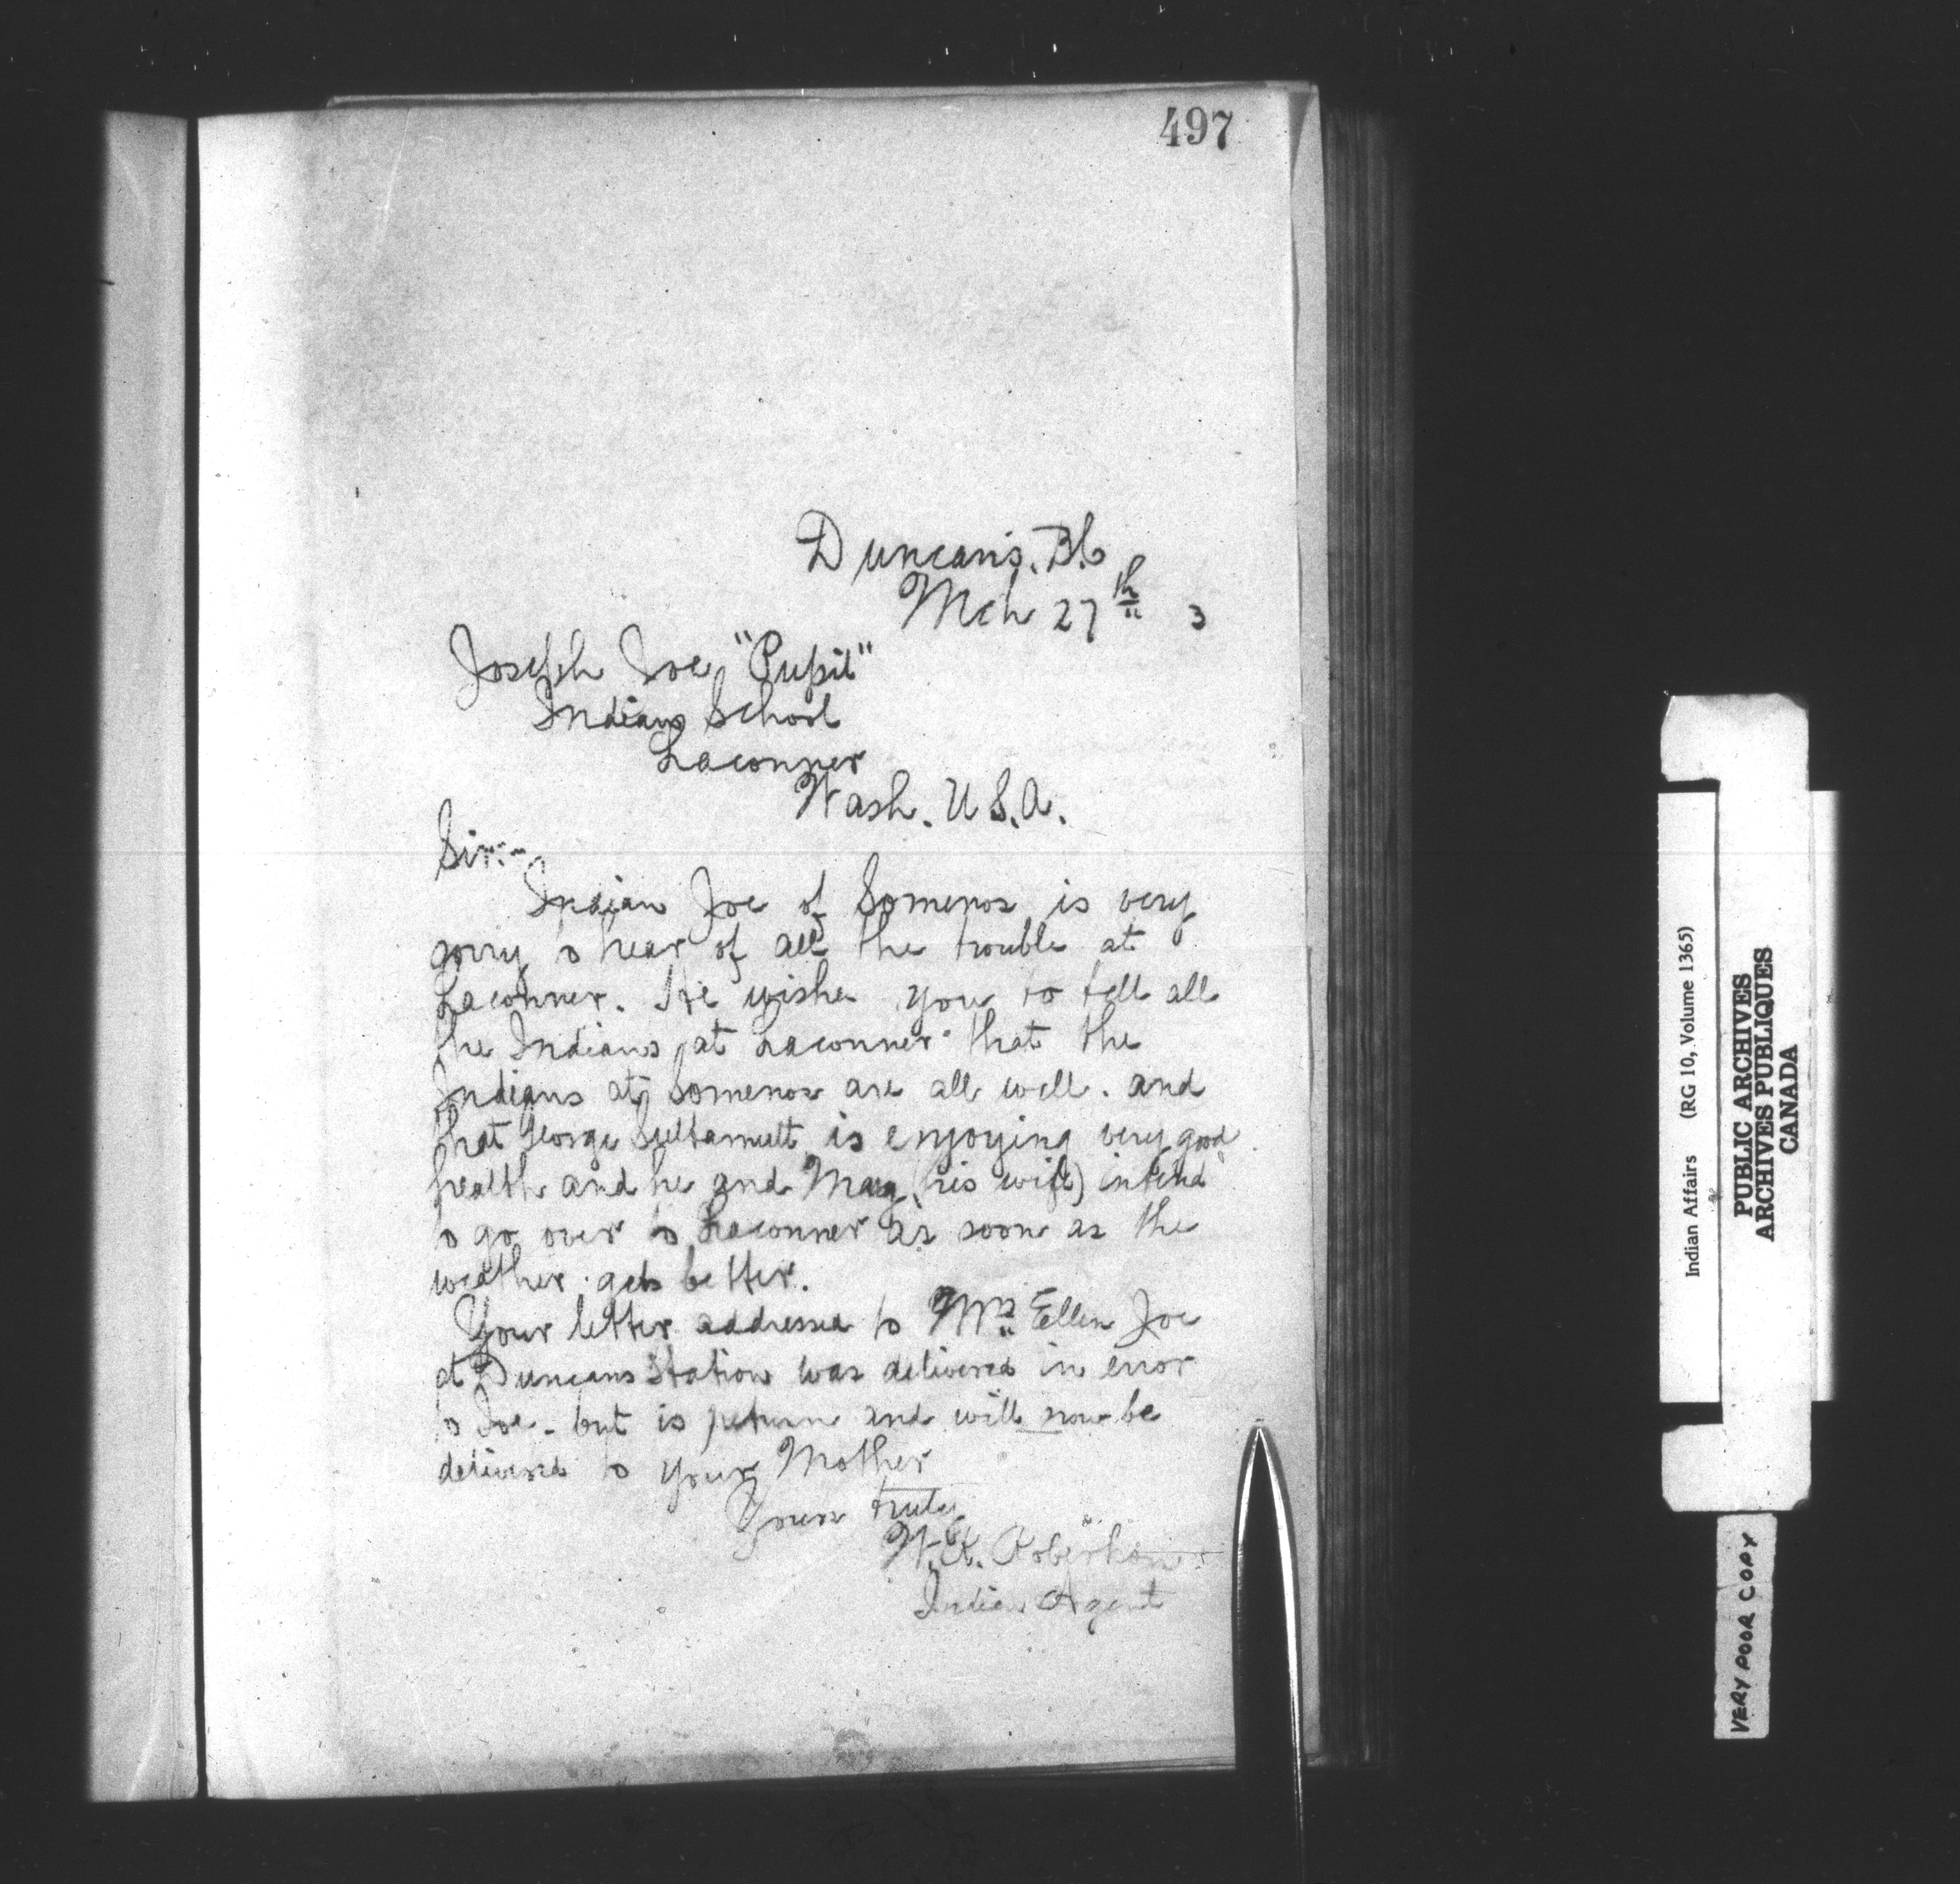 497
Duncan's. B.C
Mch 27th 3
Joseph Joe "Pupil"
Indian School
Laconner
Wash. U.S.A.
Sir:-
Indian Joe of Somenos is very
sorry to hear of all the trouble at
Laconner. He wishes you to tell all
the Indians at Laconner that the
Indians at Somenos are all well. and
that George is enjoying very good
health and he and Mary (his wife) intend
to go over to Laconner as soon as the
weather gets better.
Your letter addressed to Mrs Ellen Joe
at Duncans Station was delivered in error
to Joe - but is return and will now be
delivered to your Mother
Yours truly
W.R. Robertson
Indian Agent
Indian Affairs (RG 10, Volume 1365)
PUBLIC ARCHIVES
ARCHIVES PUBLIQUES
CANADA
VERY POOR COPY